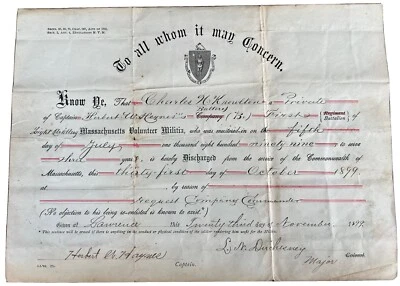 To all whom it may Concern.
Know Ye, That Charles H Knowlton a Private
Battery
of Captain Herbert W Haynes's Company (B.) First Regiment
Battalion
Light Artillery Massachusetts Volunteer Militia, who was mustered-in on the fifth
day of July one thousand eight hundred ninety nine to serve
three years, is hereby Discharged from the service of the Commonwealth
of Massachusetts, this thirty first day of October 1899,
by reason of
Request Company Commander
(No objection to his being re-enlisted is known to exist.*)
Given at Lawrence this Twenty third of November 1899
Herbert W. Haynes
Captain.
Major